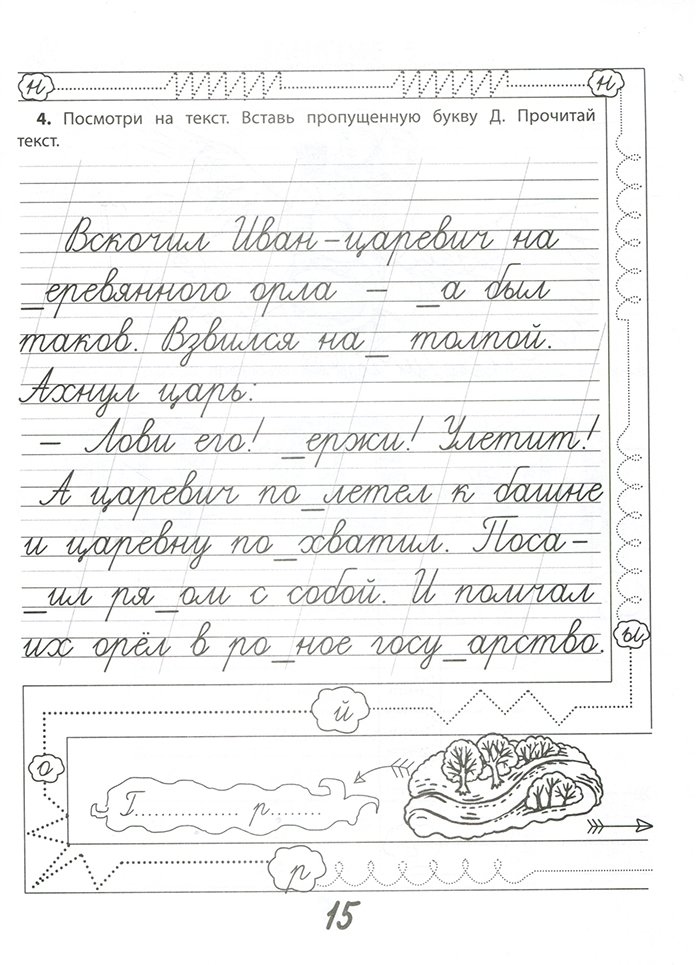 н н
4. Посмотри на текст. Вставь пропущенную букву Д. Прочитай
текст.
Вскочил Иван-царевич на
_еревянного орла – _а был
таков. Взвился на_ толпой.
Ахнул царь:
– Лови его! _ержи! Улетит!
А царевич по_летел к башне
и царевну по_хватил. Поса-
_ил ря_ом с собой. И помчал
их орёл в ро_ное госу_арство.
ы
й
о
Г............. р.......
р
15